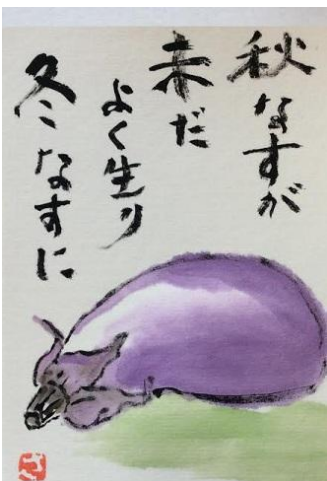 秋なすが
未だ
よく生り
冬なすに